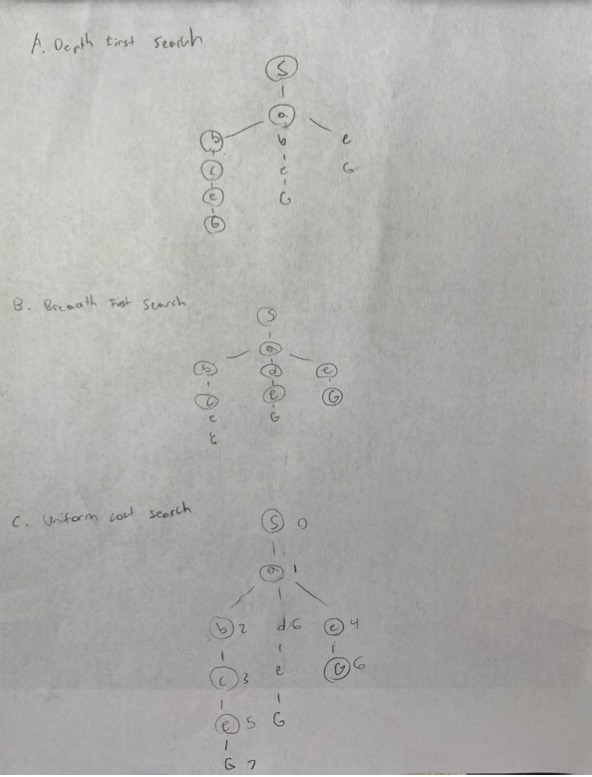 A. Depth first search
S
a
b b e
c e G
e G
G
B. Breadth First Search
S
a
b d e
c e G
e G
t
C. Uniform cost search
S 0
a 1
b 2 d 6 e 4
c 3 e G 6
e 5 G
G 7